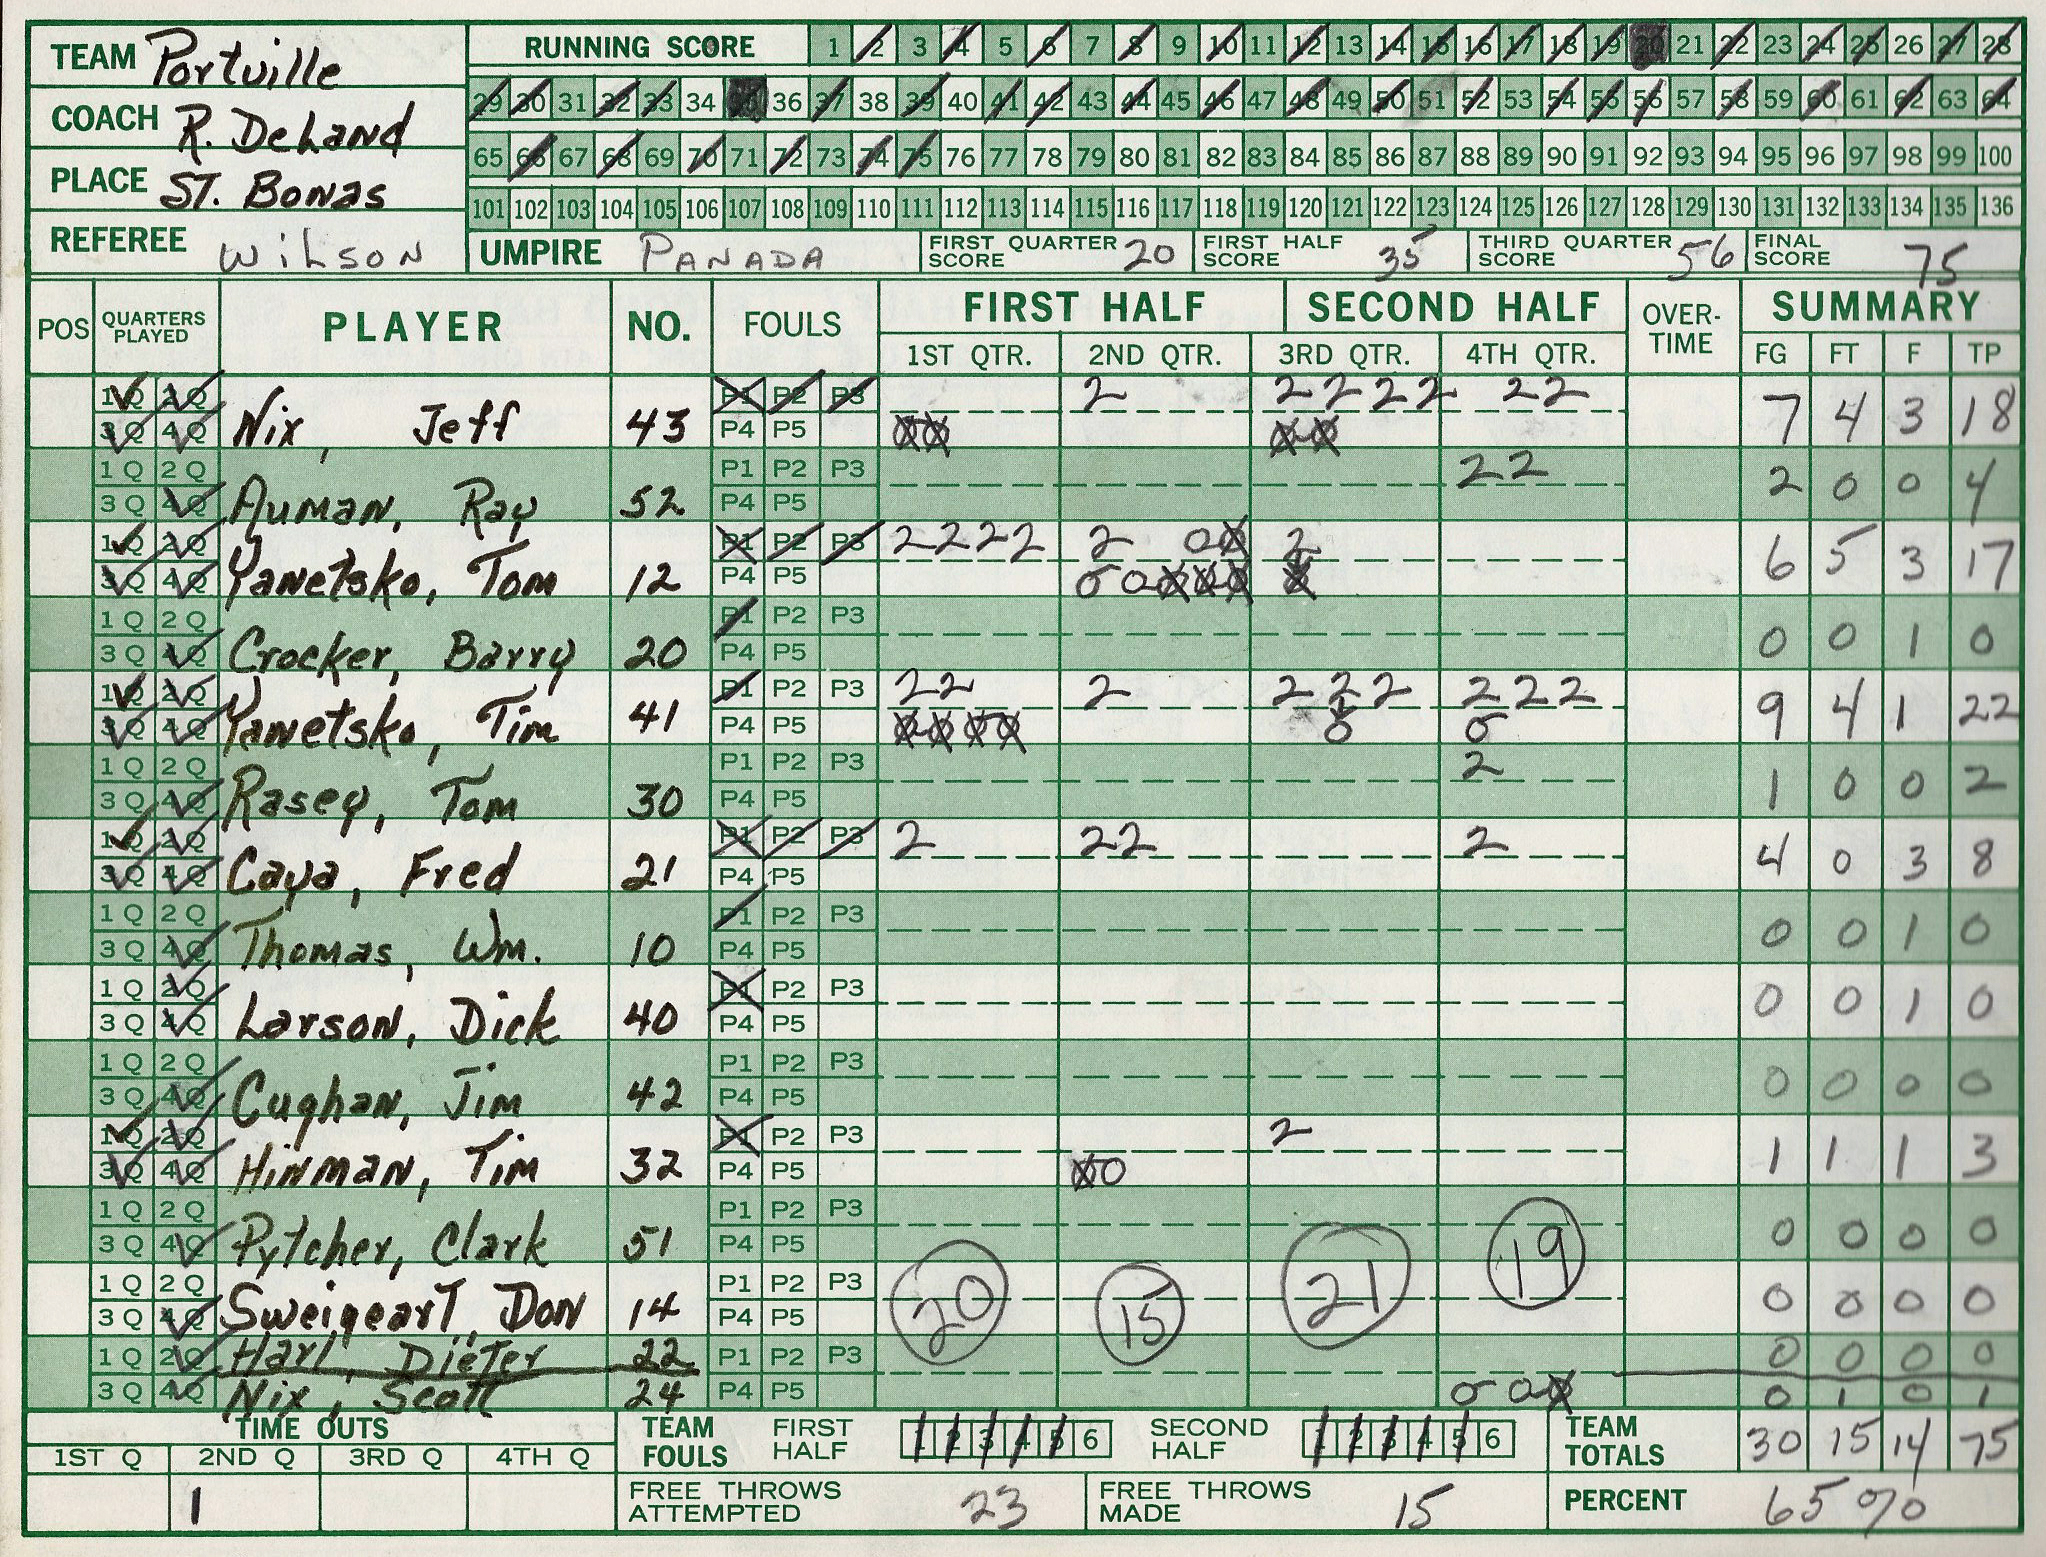 TEAM Portville
COACH R. DeLand
PLACE ST. Bonas
REFEREE Wilson
RUNNING SCORE 1 2 3 4 5 6 7 8 9 10 11 12 13 14 15 16 17 18 19 20 21 22 23 24 25 26 27 28
29 30 31 32 33 34 35 36 37 38 39 40 41 42 43 44 45 46 47 48 49 50 51 52 53 54 55 56 57 58 59 60 61 62 63 64
65 66 67 68 69 70 71 72 73 74 75 76 77 78 79 80 81 82 83 84 85 86 87 88 89 90 91 92 93 94 95 96 97 98 99 100
101 102 103 104 105 106 107 108 109 110 111 112 113 114 115 116 117 118 119 120 121 122 123 124 125 126 127 128 129 130 131 132 133 134 135 136
UMPIRE PANADA FIRST QUARTER SCORE 20 FIRST HALF SCORE 35 THIRD QUARTER SCORE 56 FINAL SCORE 75
POS QUARTERS PLAYED PLAYER NO. FOULS FIRST HALF SECOND HALF OVER-TIME SUMMARY
1ST QTR. 2ND QTR. 3RD QTR. 4TH QTR. FG FT F TP
1 Q 2 Q P1 P2 P3 2 2 2 2 2 2 2
3 Q 4 Q Nix, Jeff 43 P4 P5 7 4 3 18
1 Q 2 Q P1 P2 P3 2 2
3 Q 4 Q Auman, Ray 52 P4 P5 2 0 0 4
1 Q 2 Q P1 P2 P3 2 2 2 2 2 0 2
3 Q 4 Q Yanetsko, Tom 12 P4 P5 0 0 6 5 3 17
1 Q 2 Q P1 P2 P3
3 Q 4 Q Crocker, Barry 20 P4 P5 0 0 1 0
1 Q 2 Q P1 P2 P3 2 2 2 2 2 2 2 2 2
3 Q 4 Q Yanetsko, Tim 41 P4 P5 0 0 9 4 1 22
1 Q 2 Q P1 P2 P3 2
3 Q 4 Q Rasey, Tom 30 P4 P5 1 0 0 2
1 Q 2 Q P1 P2 P3 2 2 2 2
3 Q 4 Q Caya, Fred 21 P4 P5 4 0 3 8
1 Q 2 Q P1 P2 P3
3 Q 4 Q Thomas, Wm. 10 P4 P5 0 0 1 0
1 Q 2 Q P1 P2 P3
3 Q 4 Q Larson, Dick 40 P4 P5 0 0 1 0
1 Q 2 Q P1 P2 P3
3 Q 4 Q Cughan, Jim 42 P4 P5 0 0 0 0
1 Q 2 Q P1 P2 P3 2
3 Q 4 Q Hinman, Tim 32 P4 P5 0 1 1 1 3
1 Q 2 Q P1 P2 P3
3 Q 4 Q Pytcher, Clark 51 P4 P5 0 0 0 0
1 Q 2 Q P1 P2 P3 20 15 21 19
3 Q 4 Q Sweigeart, Don 14 P4 P5 0 0 0 0
1 Q 2 Q Harl, Dieter 22 P1 P2 P3 0 0 0 0
3 Q 4 Q Nix, Scott 24 P4 P5 0 0 0 1 0 1
TIME OUTS
1ST Q 2ND Q 3RD Q 4TH Q
1
TEAM FOULS FIRST HALF 1 2 3 4 5 6 SECOND HALF 1 2 3 4 5 6 TEAM TOTALS 30 15 14 75
FREE THROWS ATTEMPTED 23 FREE THROWS MADE 15 PERCENT 65%